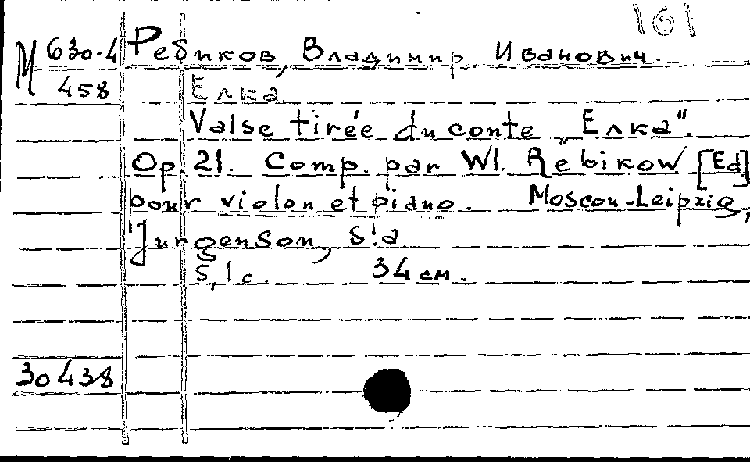 161
М 630-4 Ребиков, Владимир Иванович.
458 Елка
Valse tirée du conte „Елка".
Op. 21. Comp. par Wl. Rebikow [Ed]
pour violon et piano. Moscou-Leipzig,
Jurgenson, s.a
5,1 с. 34 см.
30438